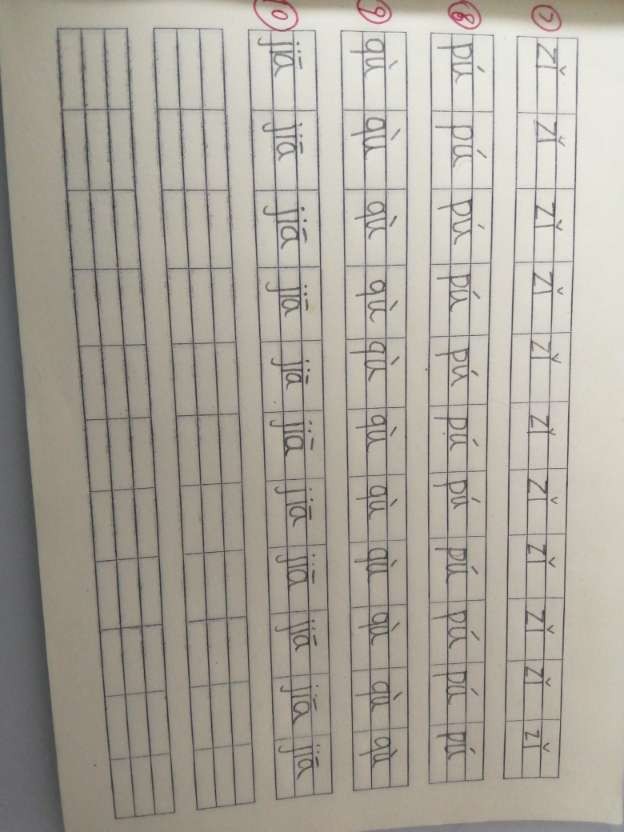 ⑦ zǐ zǐ zǐ zǐ zǐ zǐ zǐ zǐ zǐ zǐ zǐ
⑧ pú pú pú pú pú pú pú pú pú pú pú
⑨ qù qù qù qù qù qù qù qù qù qù qù
⑩ jiā jiā jiā jiā jiā jiā jiā jiā jiā jiā jiā